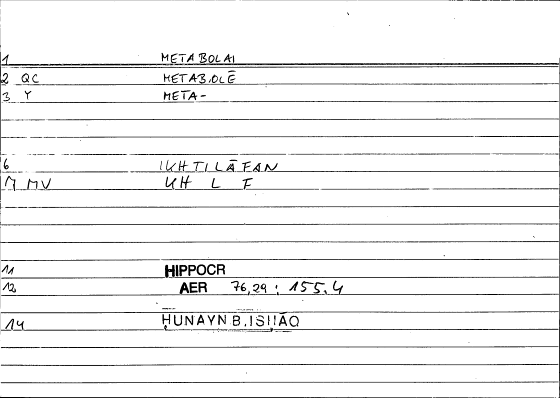 1 METABOLAI
2 QC METABOLĒ
3 Y META-
6 IKHTILĀFAN
M MV KH L F
11 HIPPOCR
12 AER 76,29 : 155,4
14 ḤUNAYN B. ISḤĀQ